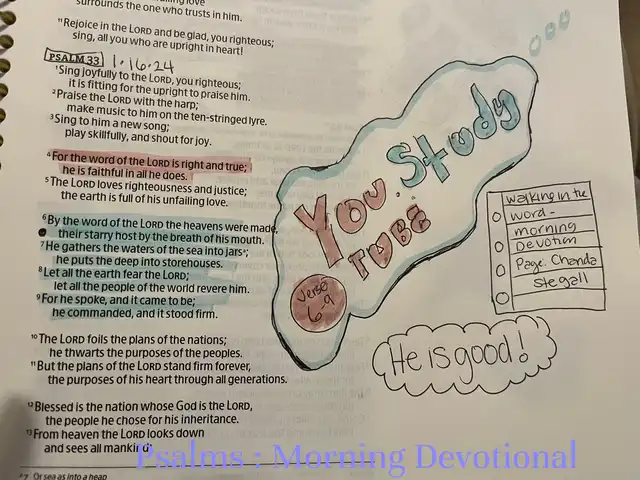 surrounds the one who trusts in him.
11 Rejoice in the LORD and be glad, you righteous;
sing, all you who are upright in heart!
PSALM 33 1.16.24
1 Sing joyfully to the LORD, you righteous;
it is fitting for the upright to praise him.
2 Praise the LORD with the harp;
make music to him on the ten-stringed lyre.
3 Sing to him a new song;
play skillfully, and shout for joy.
4 For the word of the LORD is right and true;
he is faithful in all he does.
5 The LORD loves righteousness and justice;
the earth is full of his unfailing love.
6 By the word of the LORD the heavens were made,
their starry host by the breath of his mouth.
7 He gathers the waters of the sea into jars;
he puts the deep into storehouses.
8 Let all the earth fear the LORD;
let all the people of the world revere him.
9 For he spoke, and it came to be;
he commanded, and it stood firm.
10 The LORD foils the plans of the nations;
he thwarts the purposes of the peoples.
11 But the plans of the LORD stand firm forever,
the purposes of his heart through all generations.
12 Blessed is the nation whose God is the LORD,
the people he chose for his inheritance.
13 From heaven the LORD looks down
and sees all mankind;
7 Or sea as into a heap
You Study
TUBE
Verse
6-9
walking in the
word -
morning
Devotion
Page. Chanda
Stegall
He is good!
Psalms : Morning Devotional